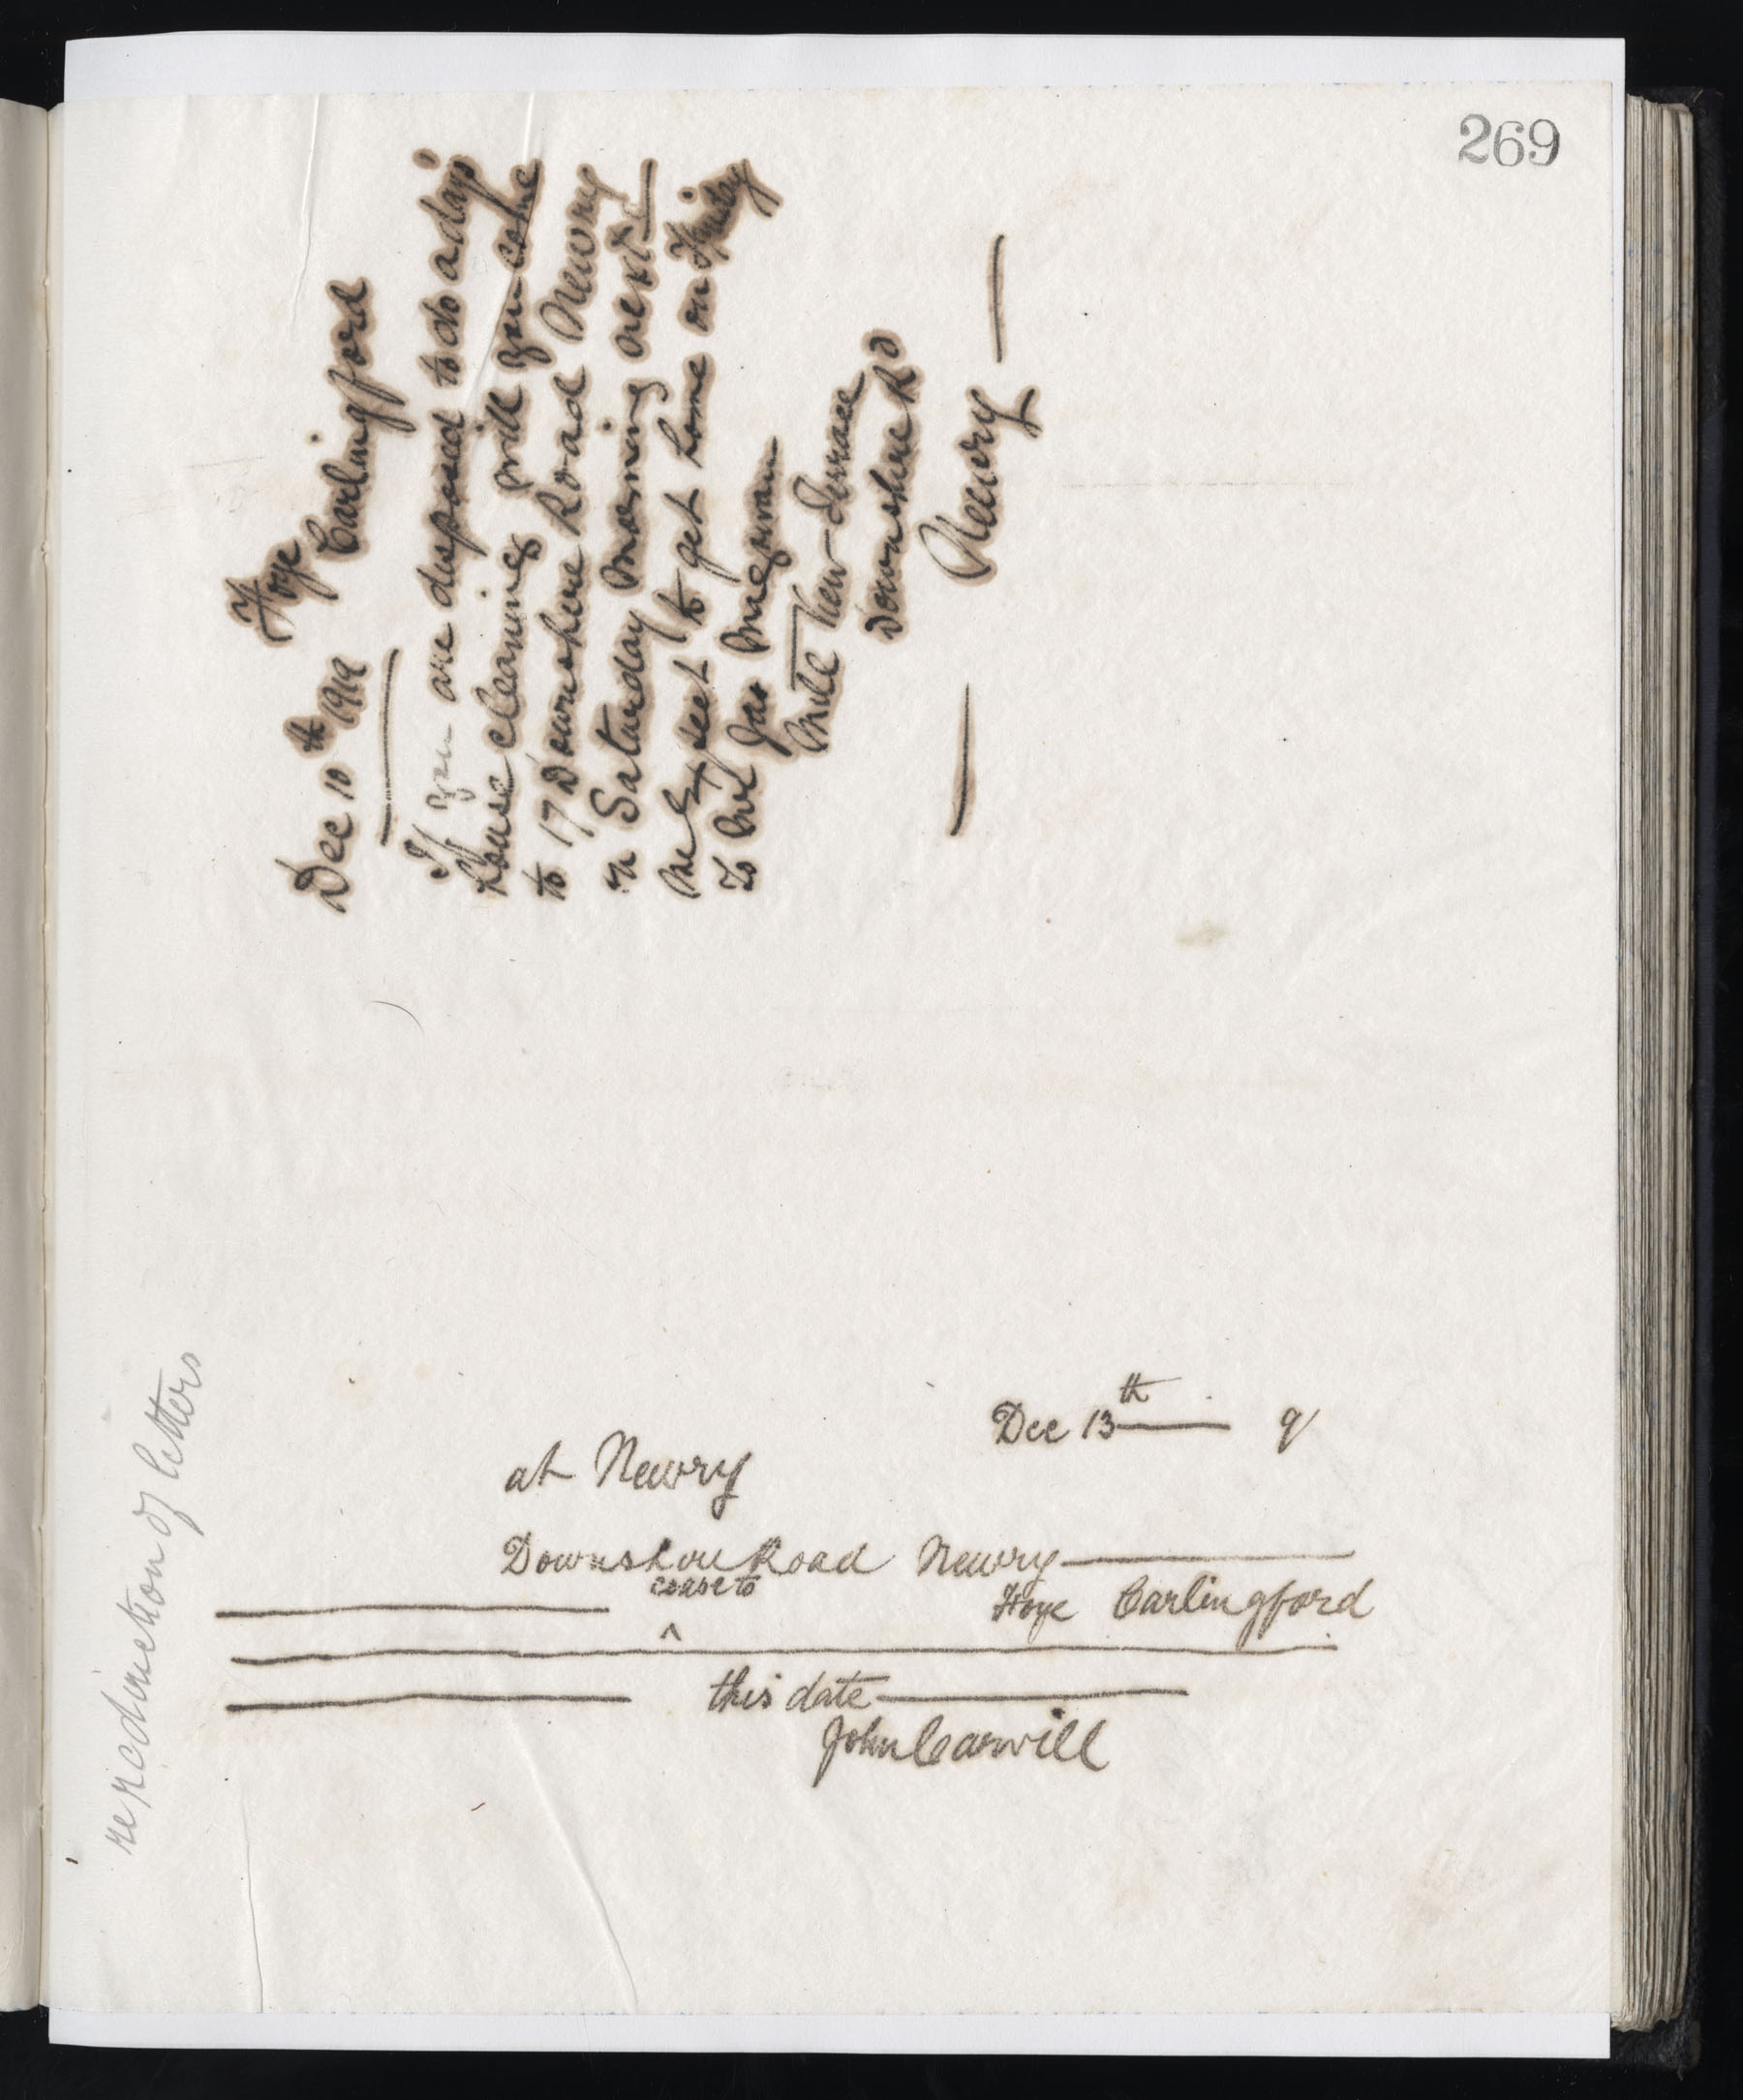 269
Foye
Carlingford
Dec 10th 1919
If you are disposed to do a days
house cleaning will you come
to 17 Downshire Road Newry
on Saturday morning next
to get home on Friday
To Mrs Jas
View Terrace
Downshire Rd
Newry
re redirection of letters
Dec 13th 9
at Newry
Downshire Road Newry
cease to
^
Foye Carlingford
this date
John Carvill